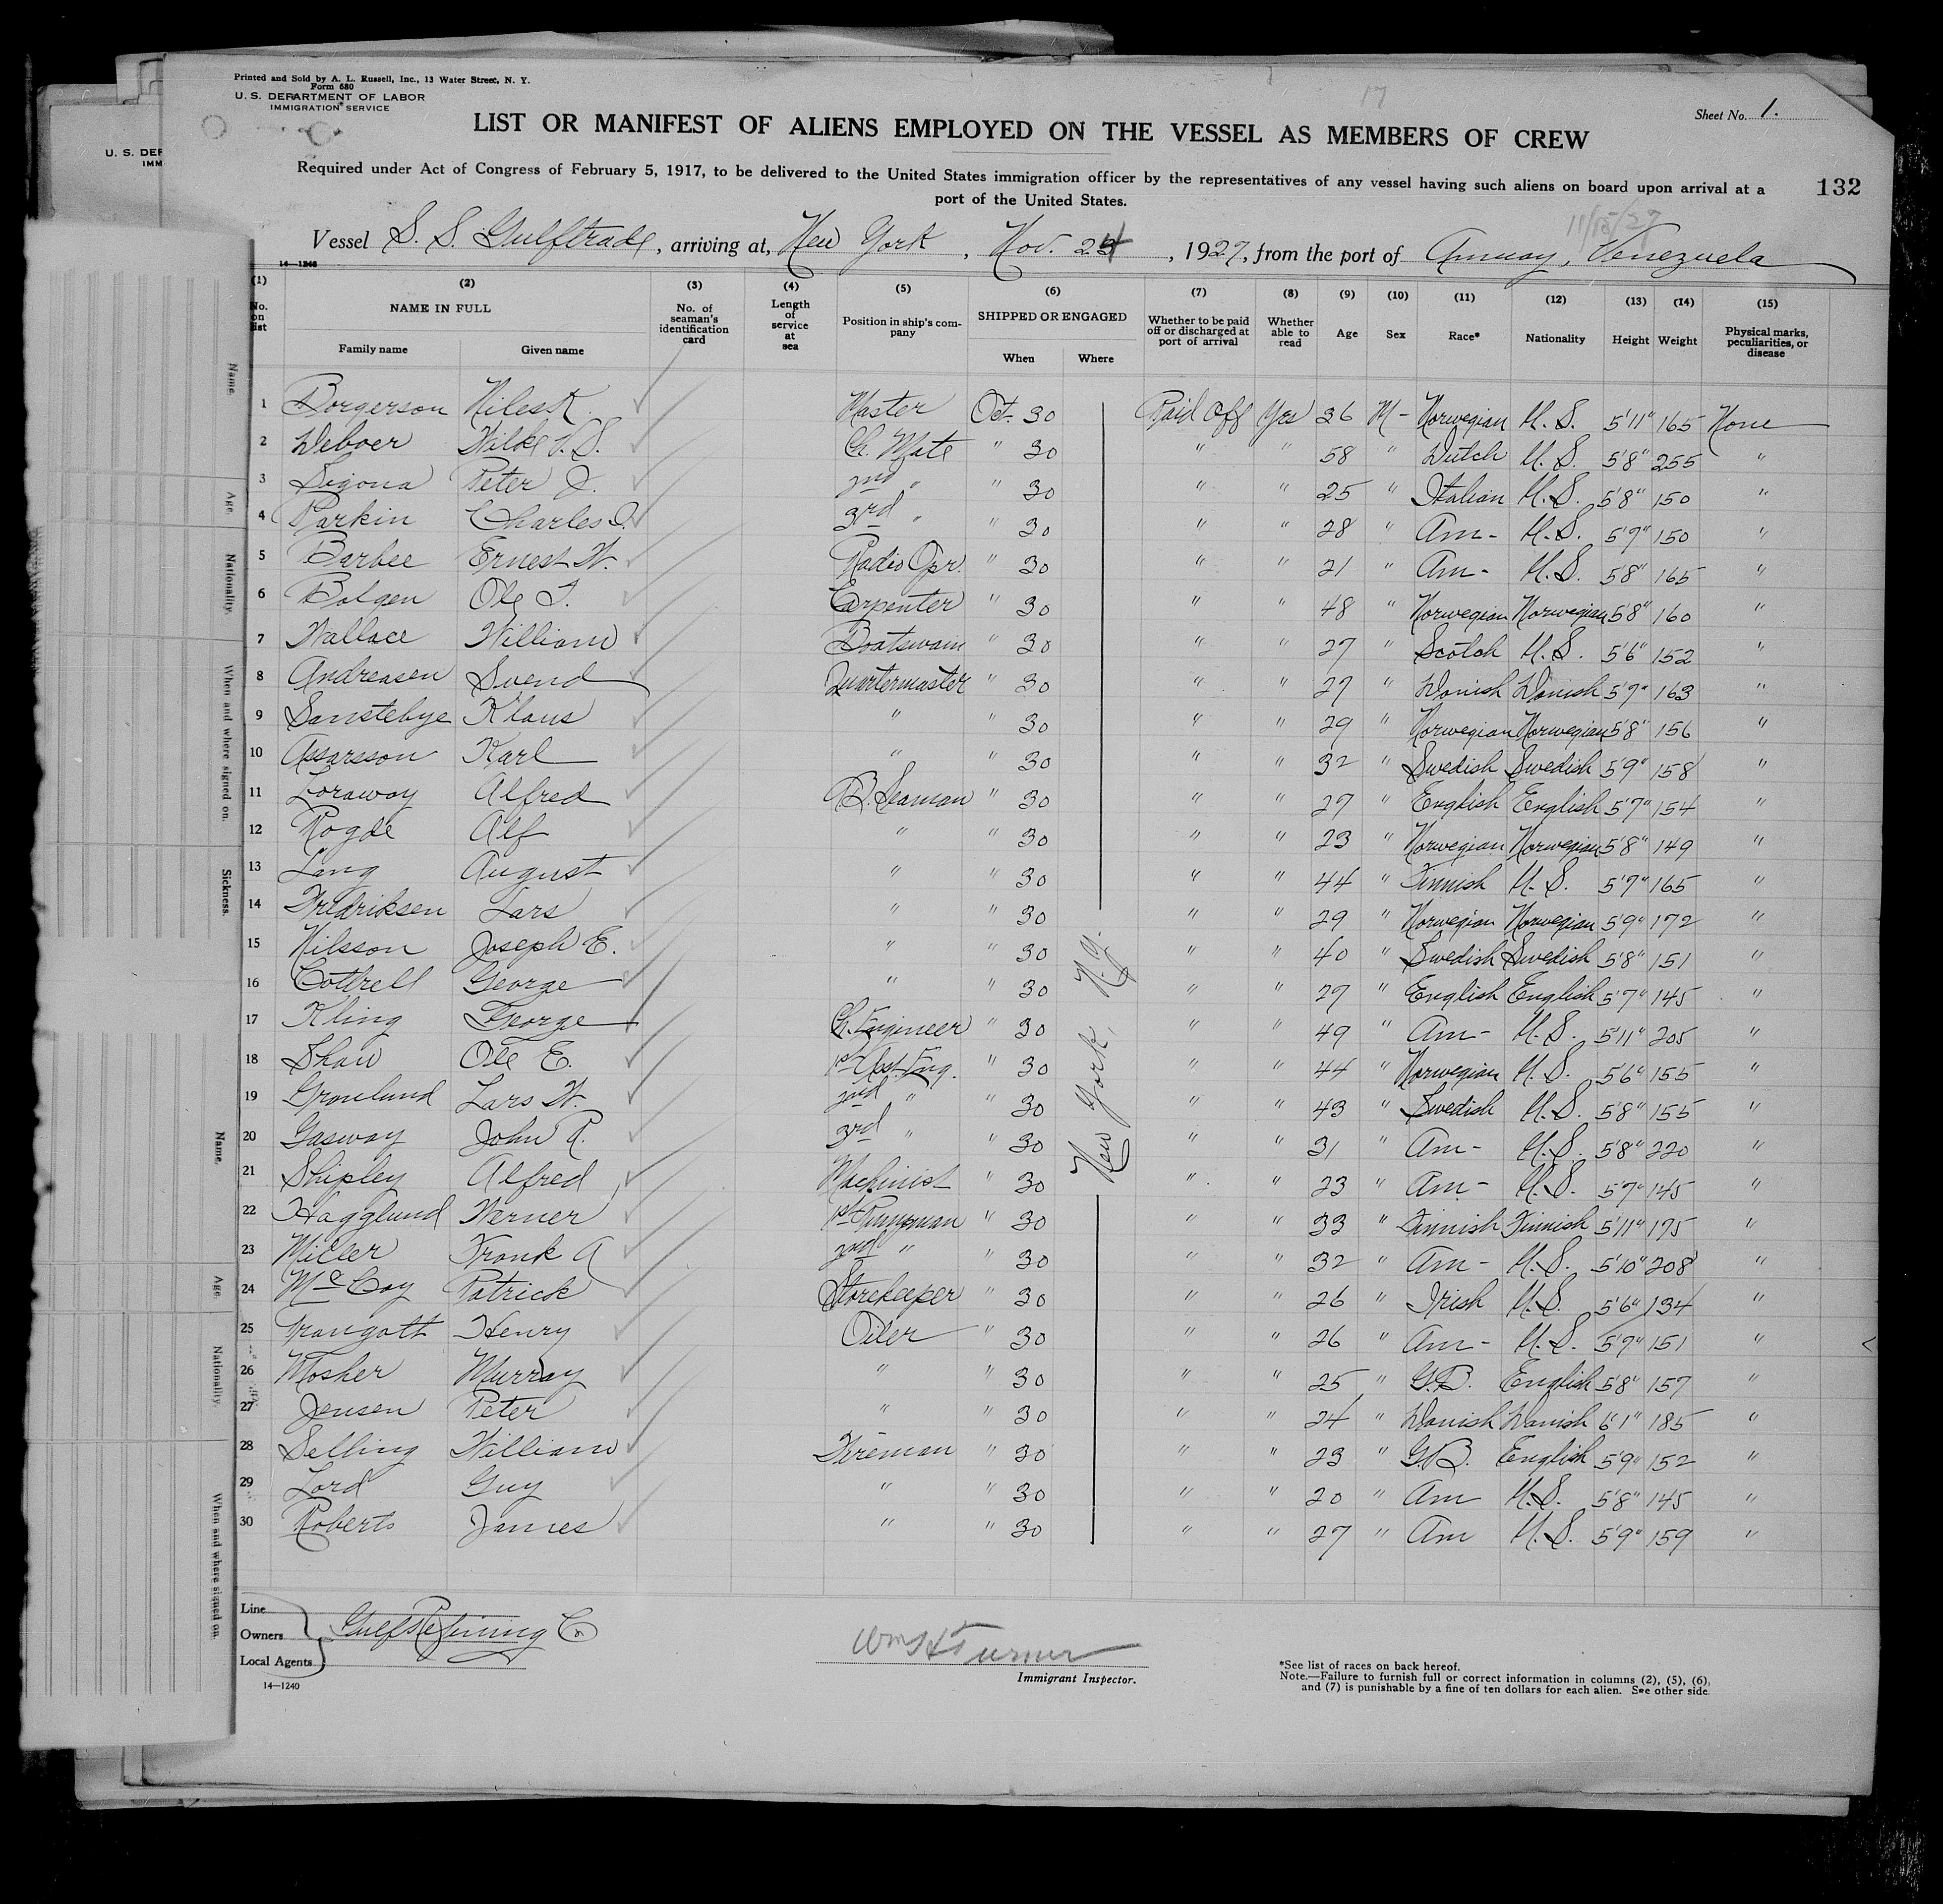 Printed and Sold by A. L. Russell, Inc., 13 Water Street, N. Y.
Form 680
U. S. DEPARTMENT OF LABOR
IMMIGRATION SERVICE
17
Sheet No. 1.
LIST OR MANIFEST OF ALIENS EMPLOYED ON THE VESSEL AS MEMBERS OF CREW
Required under Act of Congress of February 5, 1917, to be delivered to the United States immigration officer by the representatives of any vessel having such aliens on board upon arrival at a
port of the United States.
132
Vessel S. S. Gulftrade, arriving at, New York, Nov. 24, 1927, from the port of Amuay, Venezuela
14—1240
(1) (2) (3) (4) (5) (6) (7) (8) (9) (10) (11) (12) (13) (14) (15)
No. on list NAME IN FULL Family name Given name No. of seaman's identification card Length of service at sea Position in ship's company SHIPPED OR ENGAGED When Where Whether to be paid off or discharged at port of arrival Whether able to read Age Sex Race* Nationality Height Weight Physical marks, peculiarities, or disease
1 Borgerson Niles K. Master Oct. 30 Paid Off Yes 36 M - Norwegian U. S. 5'11" 165 None
2 Deboer Wilke V. S. Ch. Mate " 30 " " 58 " Dutch U. S. 5'8" 255 "
3 Sigona Peter J. 2nd " " 30 " " 25 " Italian U. S. 5'8" 150 "
4 Parkin Charles I. 3rd " " 30 " " 28 " Am - U. S. 5'7" 150 "
5 Barbee Ernest W. Radio Opr. " 30 " " 21 " Am - U. S. 5'8" 165 "
6 Bolgen Ole T. Carpenter " 30 " " 48 " Norwegian Norwegian 5'8" 160 "
7 Wallace William Boatswain " 30 " " 27 " Scotch U. S. 5'6" 152 "
8 Andreasen Svend Quartermaster " 30 " " 27 " Danish Danish 5'7" 163 "
9 Sanstebye Klaus " " 30 " " 29 " Norwegian Norwegian 5'8" 156 "
10 Assarsson Karl " " 30 " " 32 " Swedish Swedish 5'9" 158 "
11 Loraway Alfred A.B. Seaman " 30 " " 27 " English English 5'7" 154 "
12 Rogde Alf " " 30 " " 23 " Norwegian Norwegian 5'8" 149 "
13 Lang August " " 30 " " 44 " Finnish U. S. 5'7" 165 "
14 Fredriksen Lars " " 30 " " 29 " Norwegian Norwegian 5'9" 172 "
15 Nilsson Joseph E. " " 30 " " 40 " Swedish Swedish 5'8" 151 "
16 Cottrell George " " 30 " " 27 " English English 5'7" 145 "
17 Kling George Ch. Engineer " 30 " " 49 " Am - U. S. 5'11" 205 "
18 Shaw Ole E. 1st Asst. Eng. " 30 " " 44 " Norwegian U. S. 5'6" 155 "
19 Gronlund Lars W. 2nd " " 30 " " 43 " Swedish U. S. 5'8" 155 "
20 Gasway John R. 3rd " " 30 " " 31 " Am - U. S. 5'8" 220 "
21 Shipley Alfred Machinist " 30 " " 23 " Am - U. S. 5'7" 145 "
22 Hagglund Werner 1st Pumpman " 30 " " 33 " Finnish Finnish 5'11" 175 "
23 Miller Frank A 2nd " " 30 " " 32 " Am - U. S. 5'10" 208 "
24 McCoy Patrick Storekeeper " 30 " " 26 " Irish U. S. 5'6" 134 "
25 Trangott Henry Oiler " 30 " " 26 " Am - U. S. 5'7" 151 "
26 Mosher Murray " " 30 " " 25 " G.B. English 5'8" 157 "
27 Jensen Peter " " 30 " " 24 " Danish Danish 6'1" 185 "
28 Selling William Fireman " 30 " " 23 " G.B. English 5'9" 152 "
29 Lord Guy " " 30 " " 20 " Am U. S. 5'8" 145 "
30 Roberts James " " 30 " " 27 " Am U. S. 5'9" 159 "
New York, N.Y.
Line
Owners Gulf Refining Co
Local Agents
14—1240
Wm H Turner
Immigrant Inspector.
*See list of races on back hereof.
Note.—Failure to furnish full or correct information in columns (2), (5), (6),
and (7) is punishable by a fine of ten dollars for each alien. See other side.
U. S. DEP
IMM
Name.
Age.
Nationality.
When and where signed on.
Sickness.
Name.
Age.
Nationality.
When and where signed on.